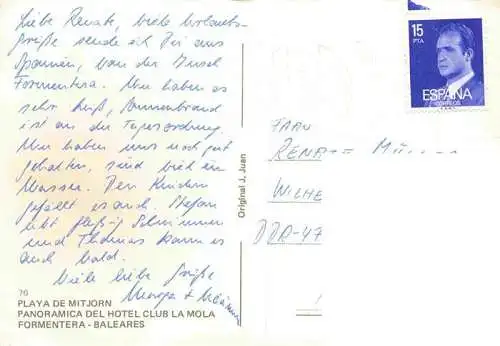 Liebe Renate, viele Urlaubs-
grüße sende ich Dir aus
Spanien, von der Insel
Formentera. Wir haben es
sehr heiß, Sonnenbrand
ist an der Tagesordnung.
Wir haben uns noch gut
gehalten, sind viel im
Wasser. Den Kindern
gefällt es auch. Stefan
übt fleißig Schwimmen
und Thomas kann es
auch bald.
Viele liebe Grüße
+
76
PLAYA DE MITJORN
PANORAMICA DEL HOTEL CLUB LA MOLA
FORMENTERA - BALEARES
Original J, Juan
15
PTA
ESPAÑA
CORREOS
FRAU
WILHE
DDR-47